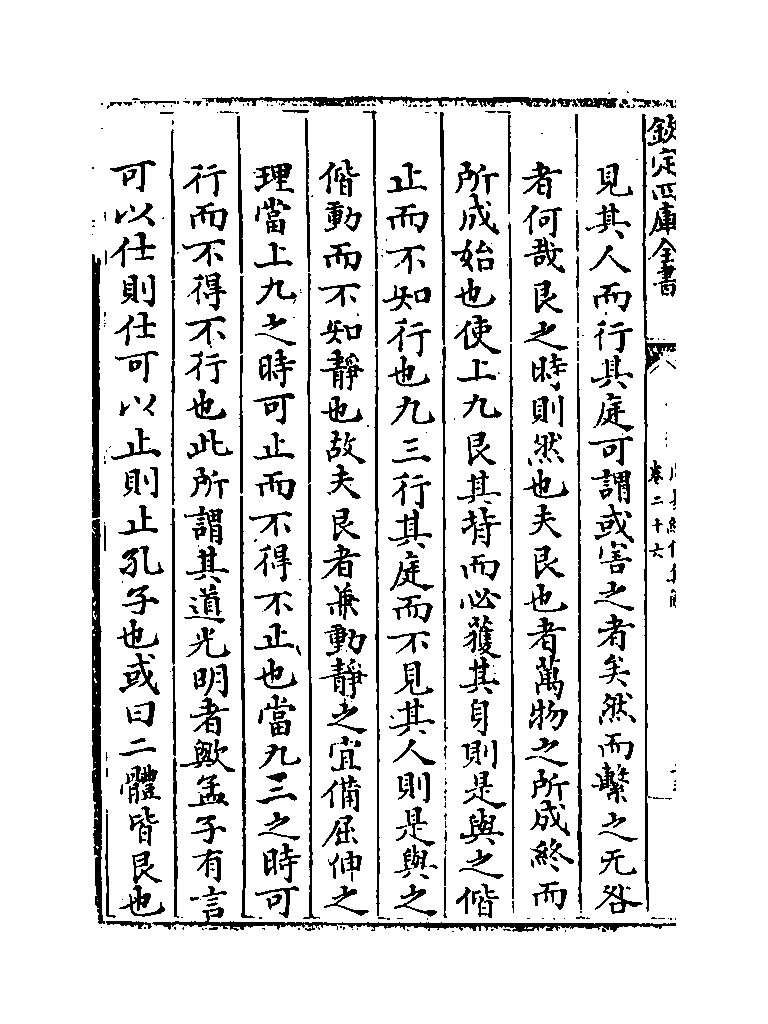 欽定四庫全書
卷二十六
見其人而行其庭可謂或害之者矣然而繫之无咎
者何哉艮之時則然也夫艮也者萬物之所成終而
所成始也使上九艮其背而必獲其身則是與之偕
止而不知行也九三行其庭而不見其人則是與之
偕動而不知靜也故夫艮者兼動靜之宜備屈伸之
理當上九之時可止而不得不止也當九三之時可
行而不得不行也此所謂其道光明者歟孟子有言
可以仕則仕可以止則止孔子也或曰二體皆艮也